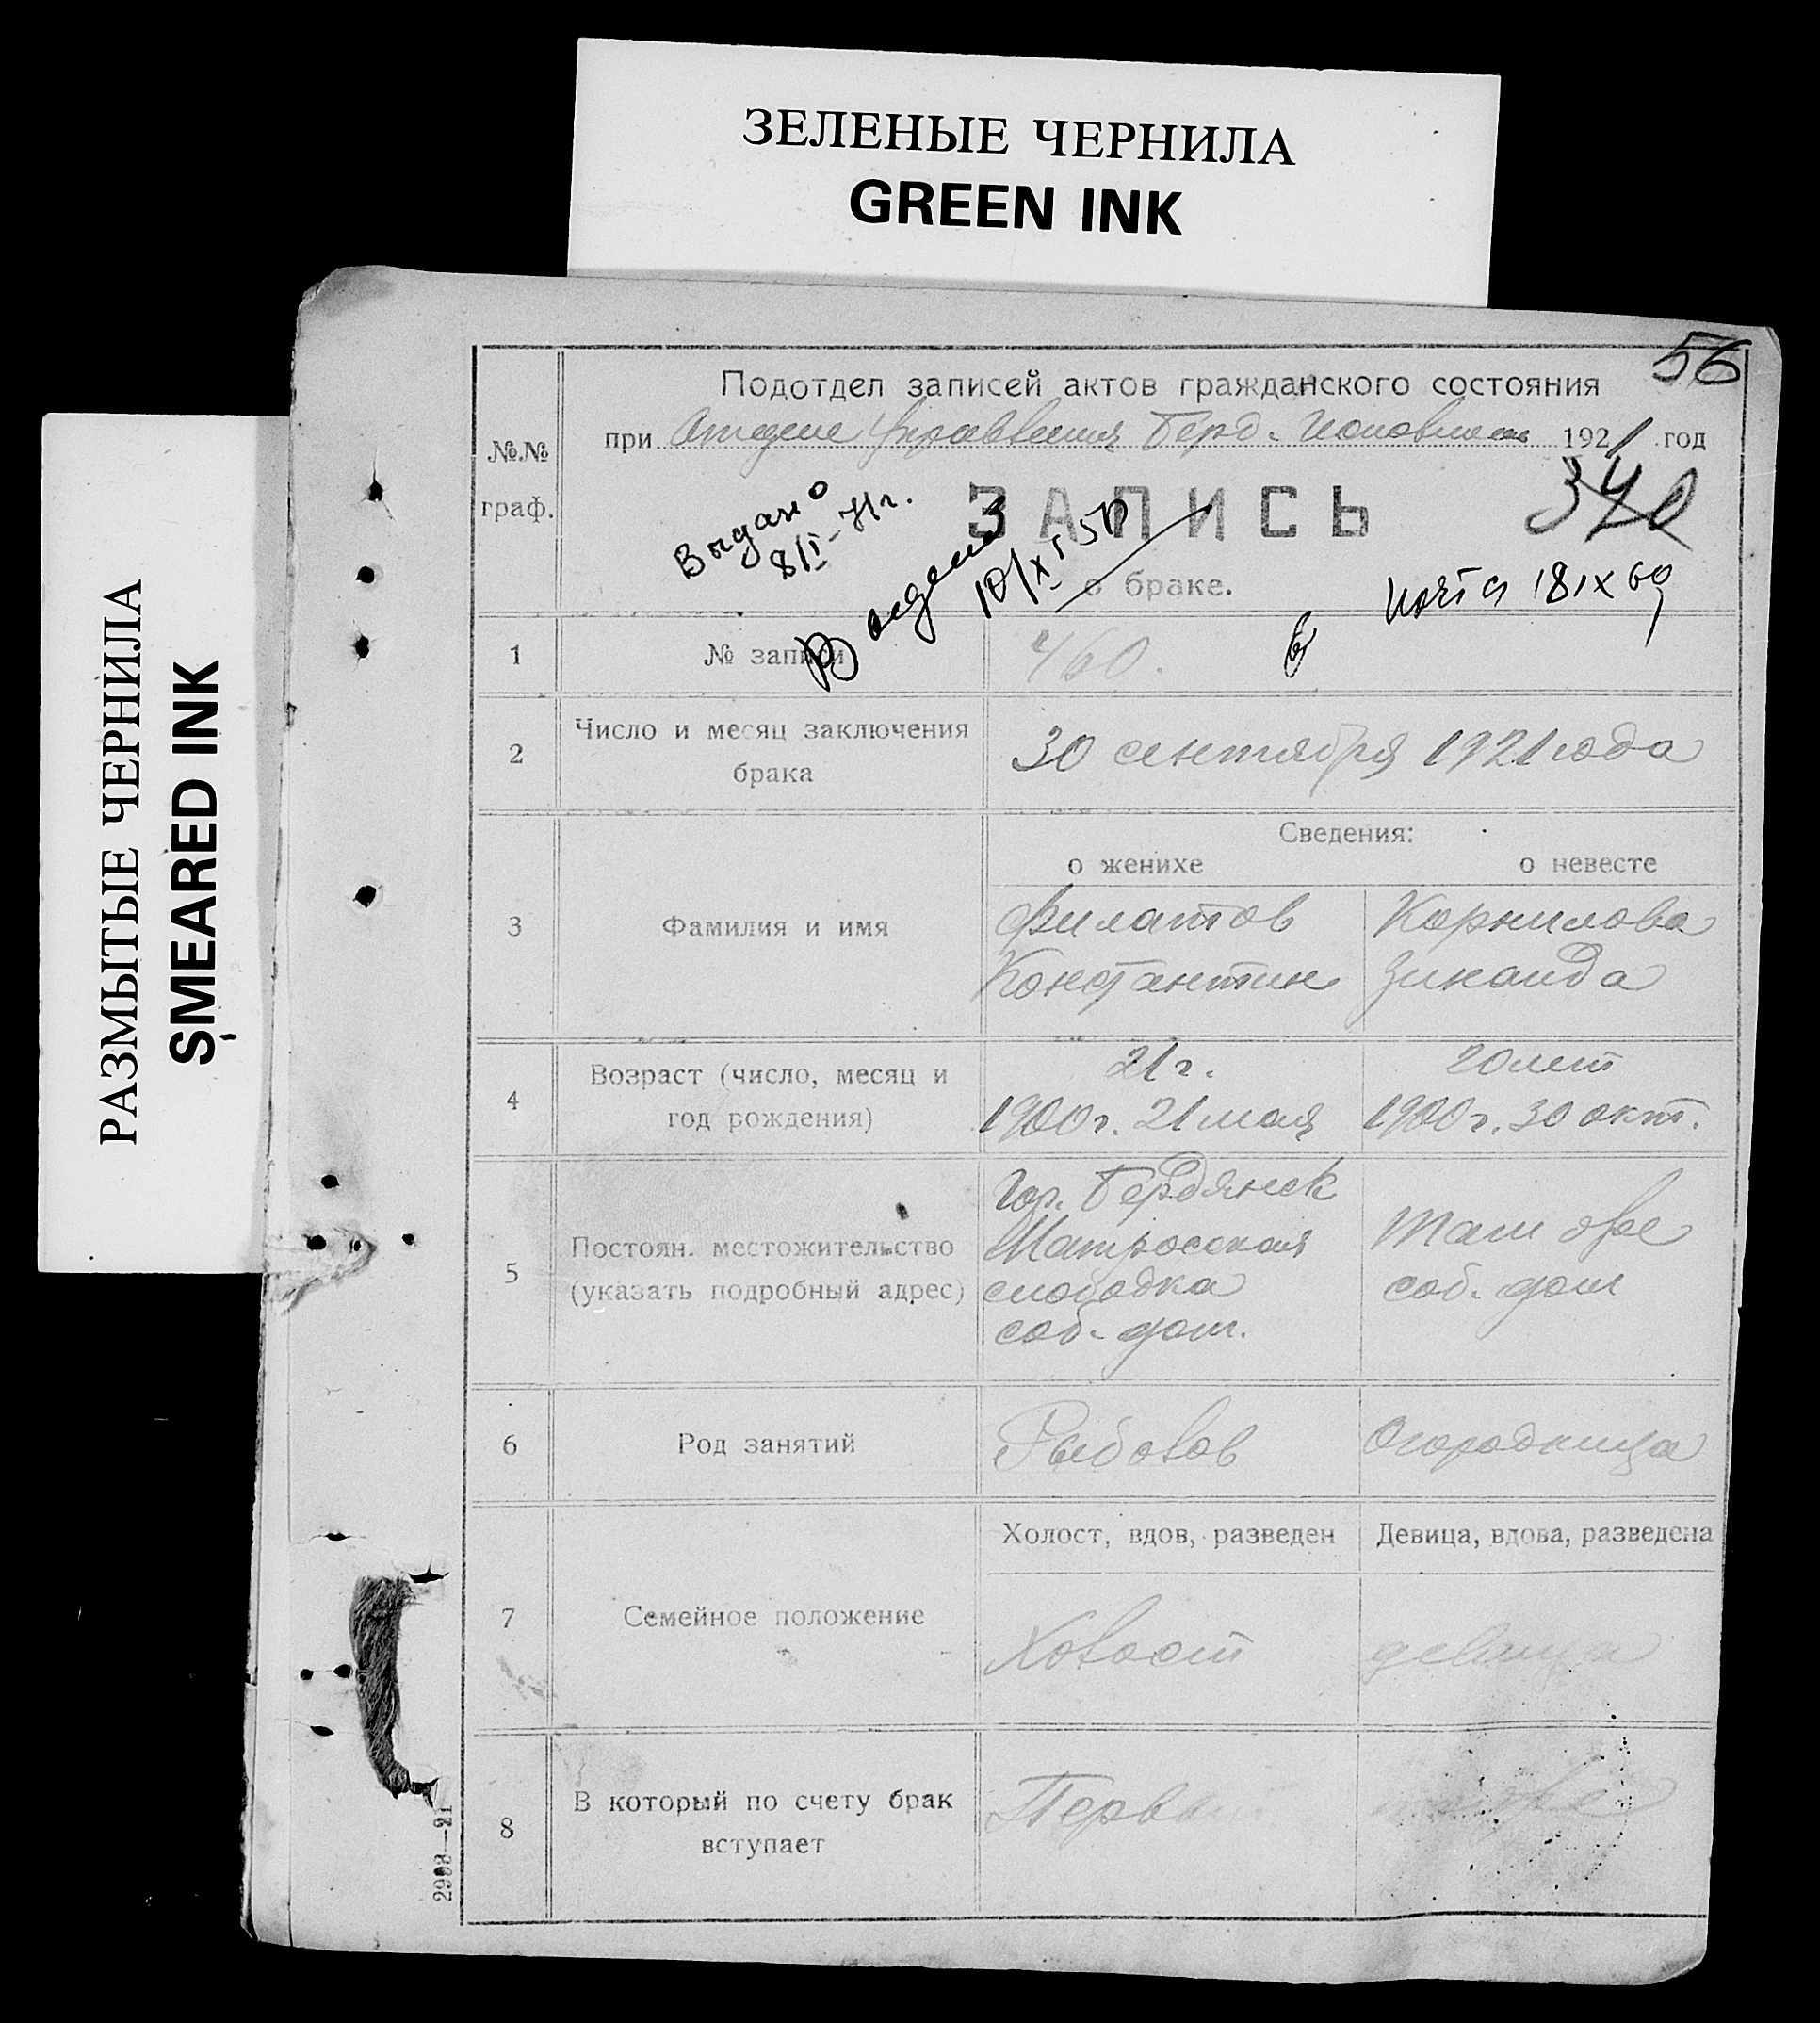 ЗЕЛЕНЫЕ ЧЕРНИЛА
GREEN INK
РАЗМЫТЫЕ ЧЕРНИЛА
SMEARED INK
56
Подотдел записей актов гражданского состояния
при Отделе Управления Берд. 1921 год
№.№
граф.
ЗАПИСЬ
340
о браке.
Выдано
8/I-71г.
10/XI 50
18 IX 69
1
№ записи
460.
2
Число и месяц заключения
брака
30 сентября 1921 года
Сведения:
о женихе
о невесте
3
Фамилия и имя
Филатов
Константин
Корнилова
Зинаида
4
Возраст (число, месяц и
год рождения)
21 г.
1900 г. 21 мая
20 лет
1900 г. 30 окт.
5
Постоян. местожительство
(указать подробный адрес)
Гор. Бердянск
Матросская
слободка
соб. дом.
Там же
соб. дом
6
Род занятий
Рыболов
Огородница
7
Семейное положение
Холост, вдов, разведен
Девица, вдова, разведена
Холост
девица
8
В который по счету брак
вступает
Первый
2908—21